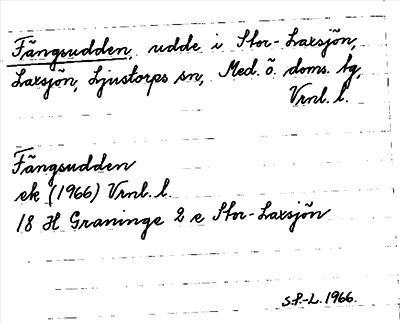 Fängsudden, udde i Stor-Laxsjön,
Laxsjön, Ljustorps sn, Med. ö. doms. tg,
Vrnl. l.
Fängsudden
ek (1966) Vrnl. l.
18 H Graninge 2 e Stor-Laxsjön
S.P.-L. 1966.